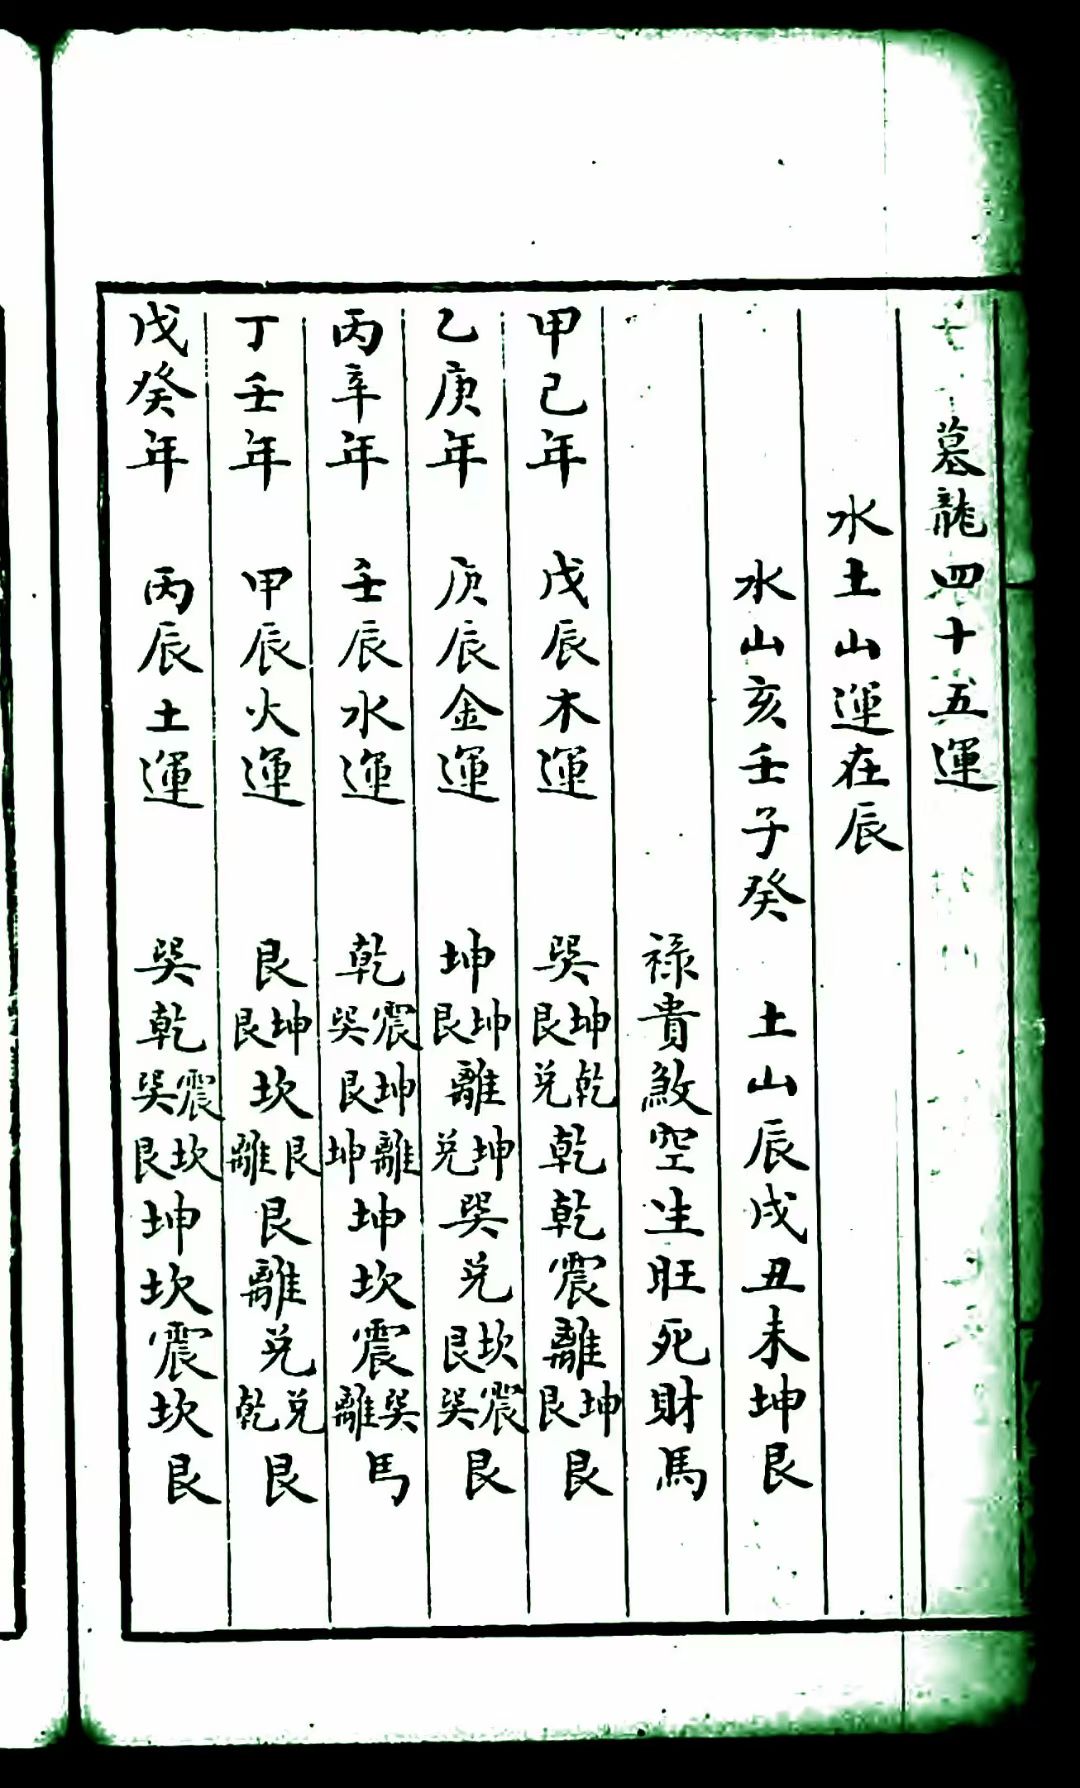 墓龍四十五運
水土山運在辰
水山亥壬子癸　土山辰戌丑未坤艮
祿貴煞空生旺死財馬
甲己年　戊辰木運　巽坤艮乾兌乾乾震離坤艮艮
乙庚年　庚辰金運　坤坤艮離坤兌巽兌坎艮震巽艮
丙辛年　壬辰水運　乾震巽坤艮離坤坤坎震巽離馬
丁壬年　甲辰火運　艮坤艮坎艮離艮離兌兌乾艮
戊癸年　丙辰土運　巽乾震巽坎艮坤坎震坎艮